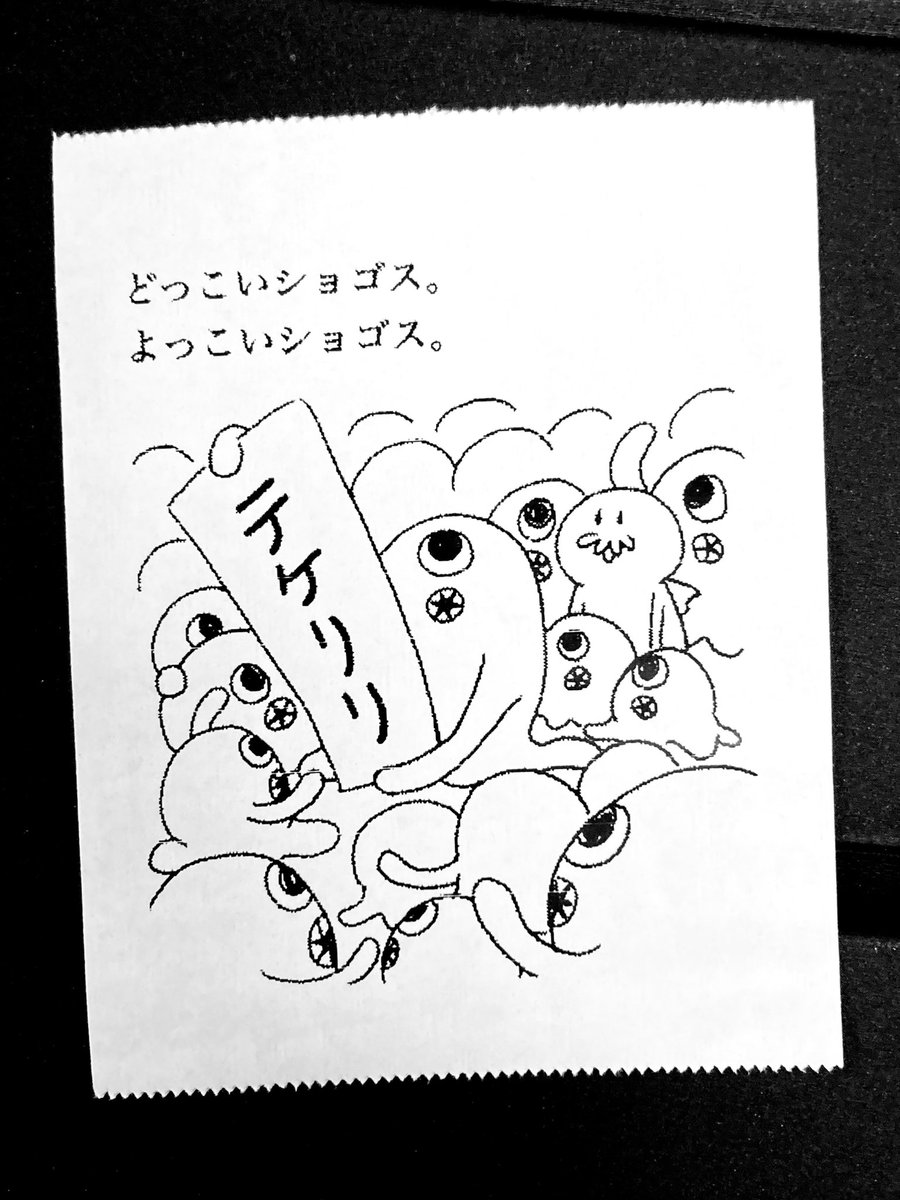 どっこいショゴス。
よっこいショゴス。
テケリリ